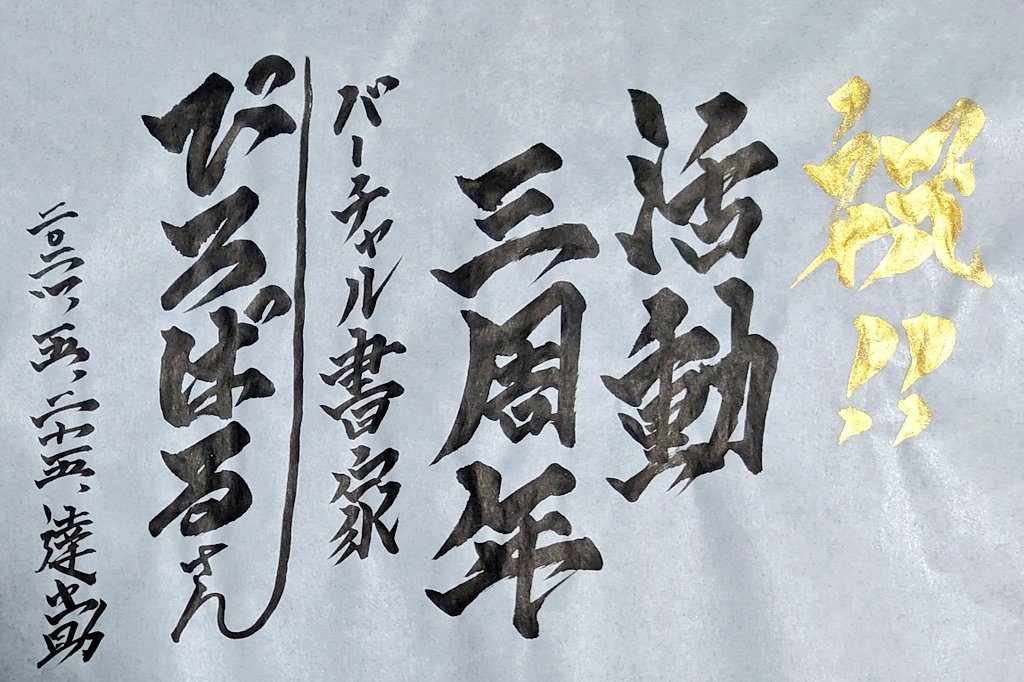 祝!!
活動
三周年
バーチャル書家
びろばるさん
二〇二六、五、二十五、達助